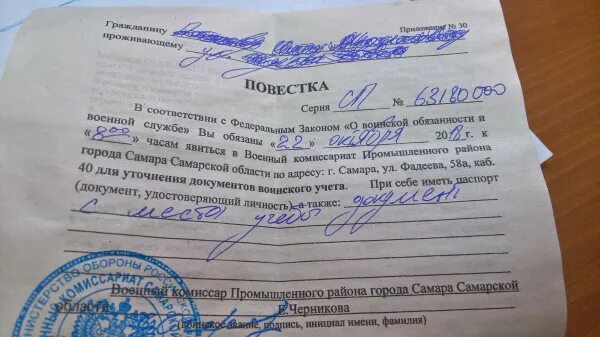 Приложение № 30
Гражданину
проживающему ул.
ПОВЕСТКА
Серия СП № 63180000
В соответствии с Федеральным Законом «О воинской обязанности и
военной службе» Вы обязаны «22» октября 2018 г. к
«8 00» часам явиться в Военный комиссариат Промышленного района
города Самара Самарской области по адресу: г. Самара, ул. Фадеева, 58а, каб.
40 для уточнения документов воинского учета. При себе иметь паспорт
(документ, удостоверяющий личность), а также: документ
с места учебы
Военный комиссар Промышленного района города Самара Самарской
области
Е.Черникова
(Воинское звание, подпись, инициал имени, фамилия)
МИНИСТЕРСТВО ОБОРОНЫ РОССИЙСКОЙ